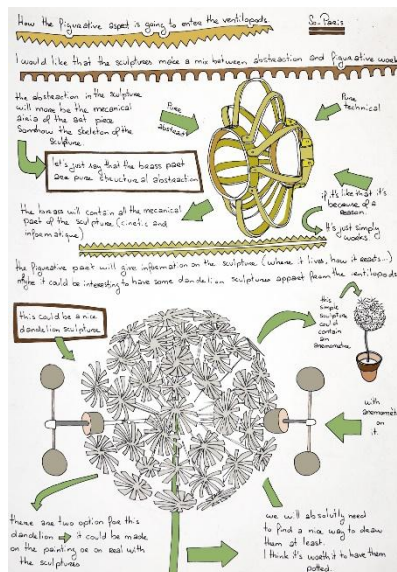 How the figurative aspect is going to enter the ventilopods.
S... Paris
I would like that the sculptures make a mix between abstraction and figurative work
the abstraction in the sculpture
will more be the mecanical
of the art piece
somehow the skeleton of the
sculpture.
Pure
abstract
Pure
technical
let's just say that the brass part
are pure structural abstraction
if it's like that it's
because of a
reason.
It's just simply
works
the brass will contain all the mecanical
part of the sculpture (cinetic and
informatique)
the figurative part will give information on the sculpture (where it lives, how it reacts...)
it could be interesting to have some dandelion sculptures appart from the ventilopods
this could be a nice
dandelion sculpture
this
simple
sculpture
could
contain
an
anemometre
with
anemometre
on
it.
there are two option for this
dandelion ⇒ it could be made
on the painting or on real with
the sculptures
we will absolutly need
to find a nice way to draw
them at least.
I think it's worth it to have them
potted.